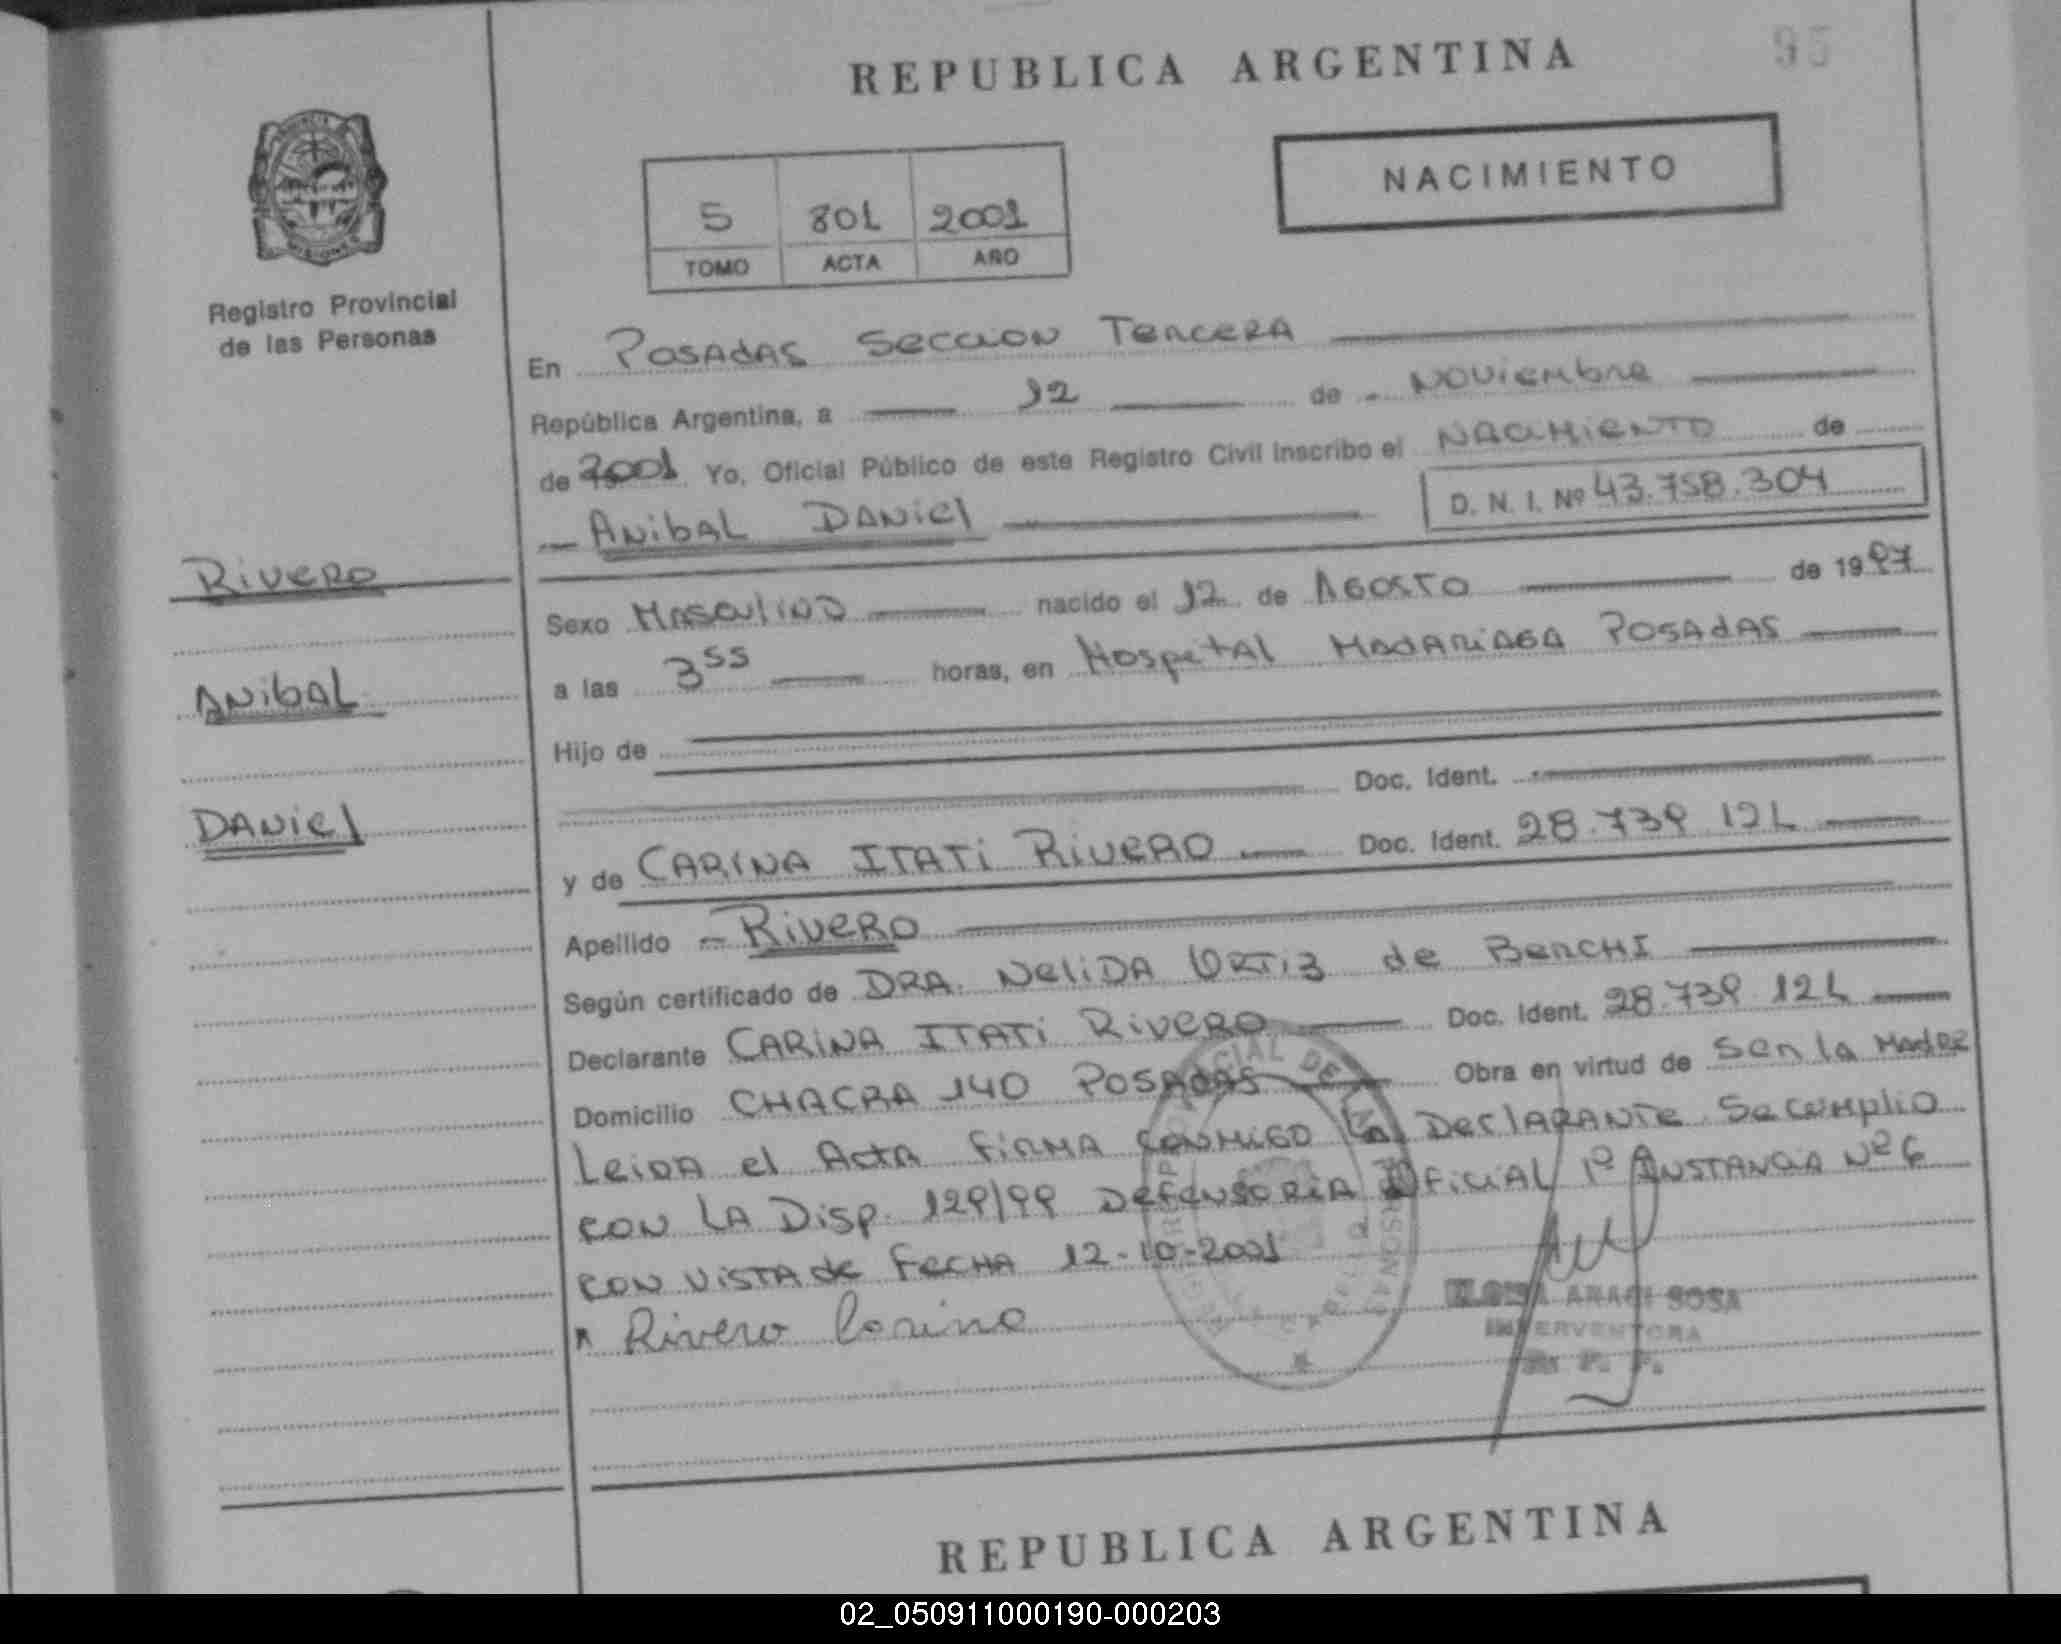 REPUBLICA ARGENTINA
95
NACIMIENTO
5 801 2001
TOMO ACTA AÑO
Registro Provincial
de las Personas
En Posadas Seccion Tercera
República Argentina, a 12 de Noviembre
de 2001 Yo, Oficial Público de este Registro Civil Inscribo el Nacimiento de
Anibal Daniel D. N. I. Nº 43.758.304
Rivero
Anibal
Daniel
Sexo Masculino nacido el 12 de Agosto de 1997
a las 3 55 horas, en Hospital Madariaga Posadas
Hijo de
Doc. Ident.
y de Carina Itati Rivero Doc. Ident. 28.739 121
Apellido Rivero
Según certificado de Dra. Nelida Ortiz de Berchi
Declarante Carina Itati Rivero Doc. Ident. 28.739 121
Domicilio Chacra 140 Posadas Obra en virtud de Ser la Madre
Leida el Acta Firma conmigo la Declarante Se cumplio
con la Disp. 129/99 Defensoria Oficial 1º Instancia Nº 6
con vista de fecha 12-10-2001
Rivero Carina
ARACI SOSA
INTERVENTORA
REPUBLICA ARGENTINA
02_050911000190-000203